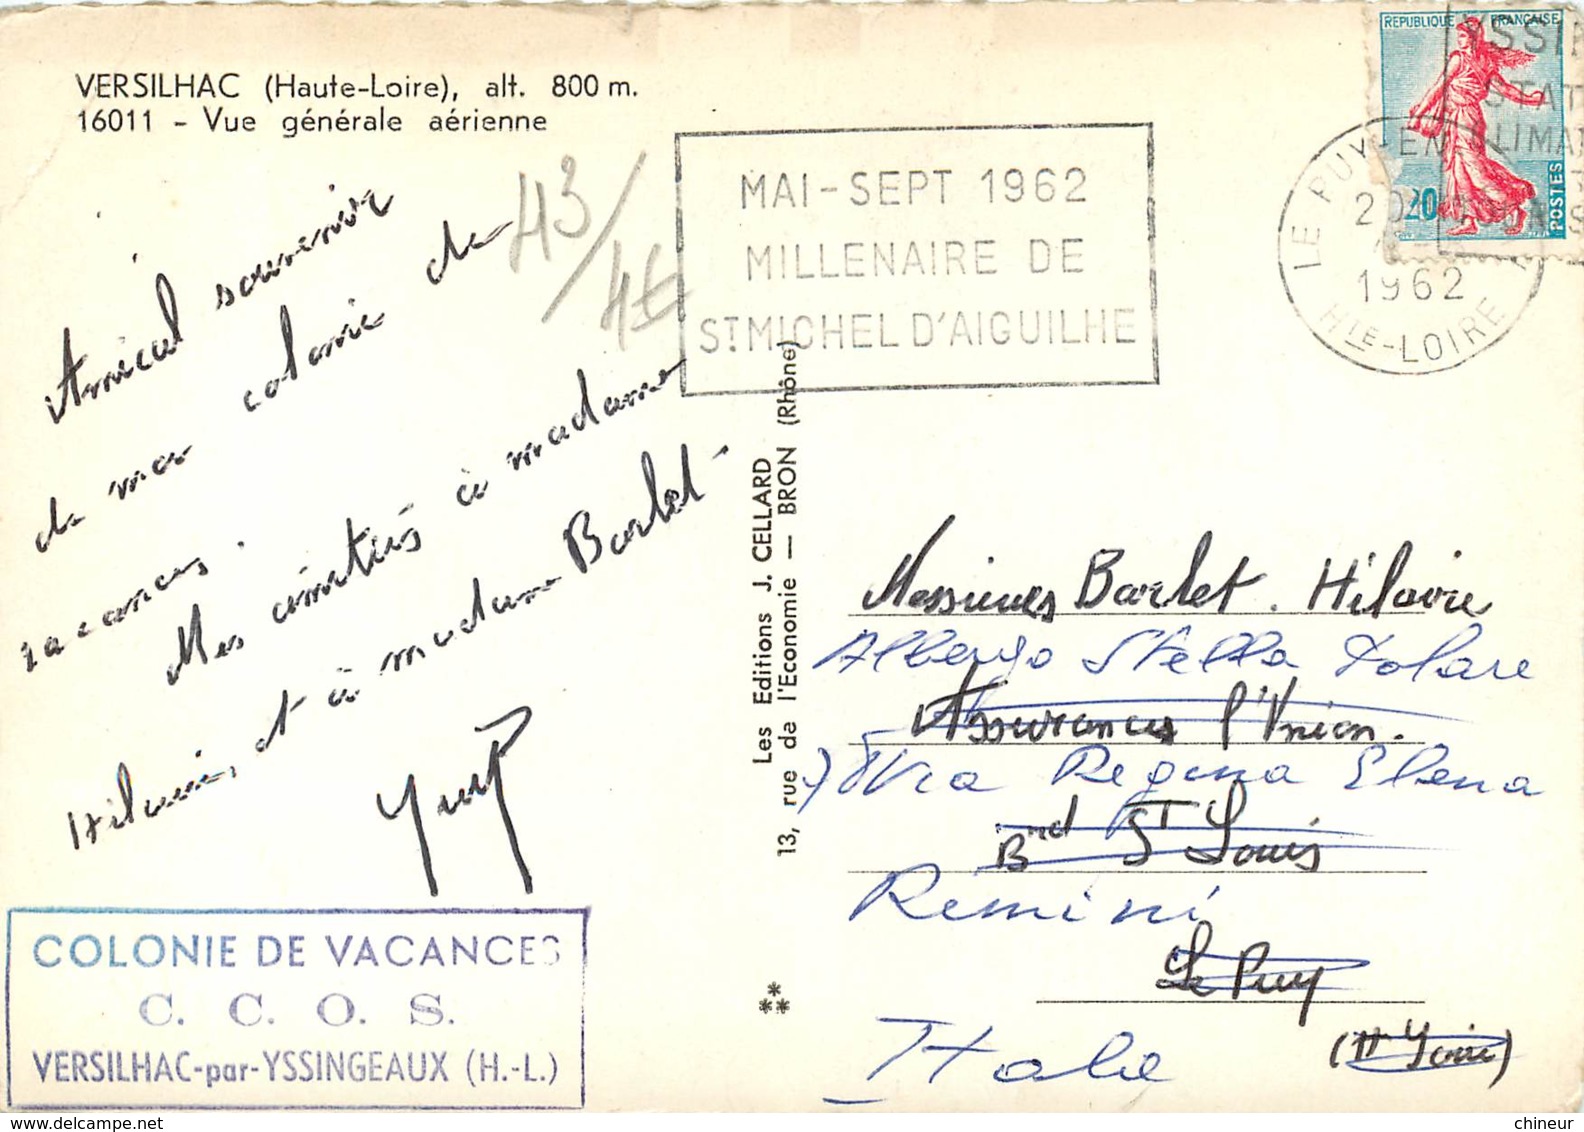 VERSILHAC (Haute-Loire), alt. 800 m.
16011 - Vue générale aérienne
Amical souvenir
de ma colonie de
vacances.
Mes amitiés à madame
Hilaire, et à madame Bartet
43/
4€
COLONIE DE VACANCES
C. C. O. S.
VERSILHAC-par-YSSINGEAUX (H.-L.)
MAI - SEPT 1962
MILLENAIRE DE
ST MICHEL D'AIGUILHE
REPUBLIQUE FRANÇAISE
0,20
POSTES
YSSI
STAT
CLIMA
LE PUY-EN
1962
HTE-LOIRE
Les Editions J. CELLARD
13, rue de l'Economie — BRON (Rhône)
Messieurs Bartet. Hilaire
Albergo Stella Polare
Assurances l'Union.
Via Regina Elena
Brd St Louis
Rimini
Le Puy
(Hte Loire)
Italie
delcampe.net
chineur